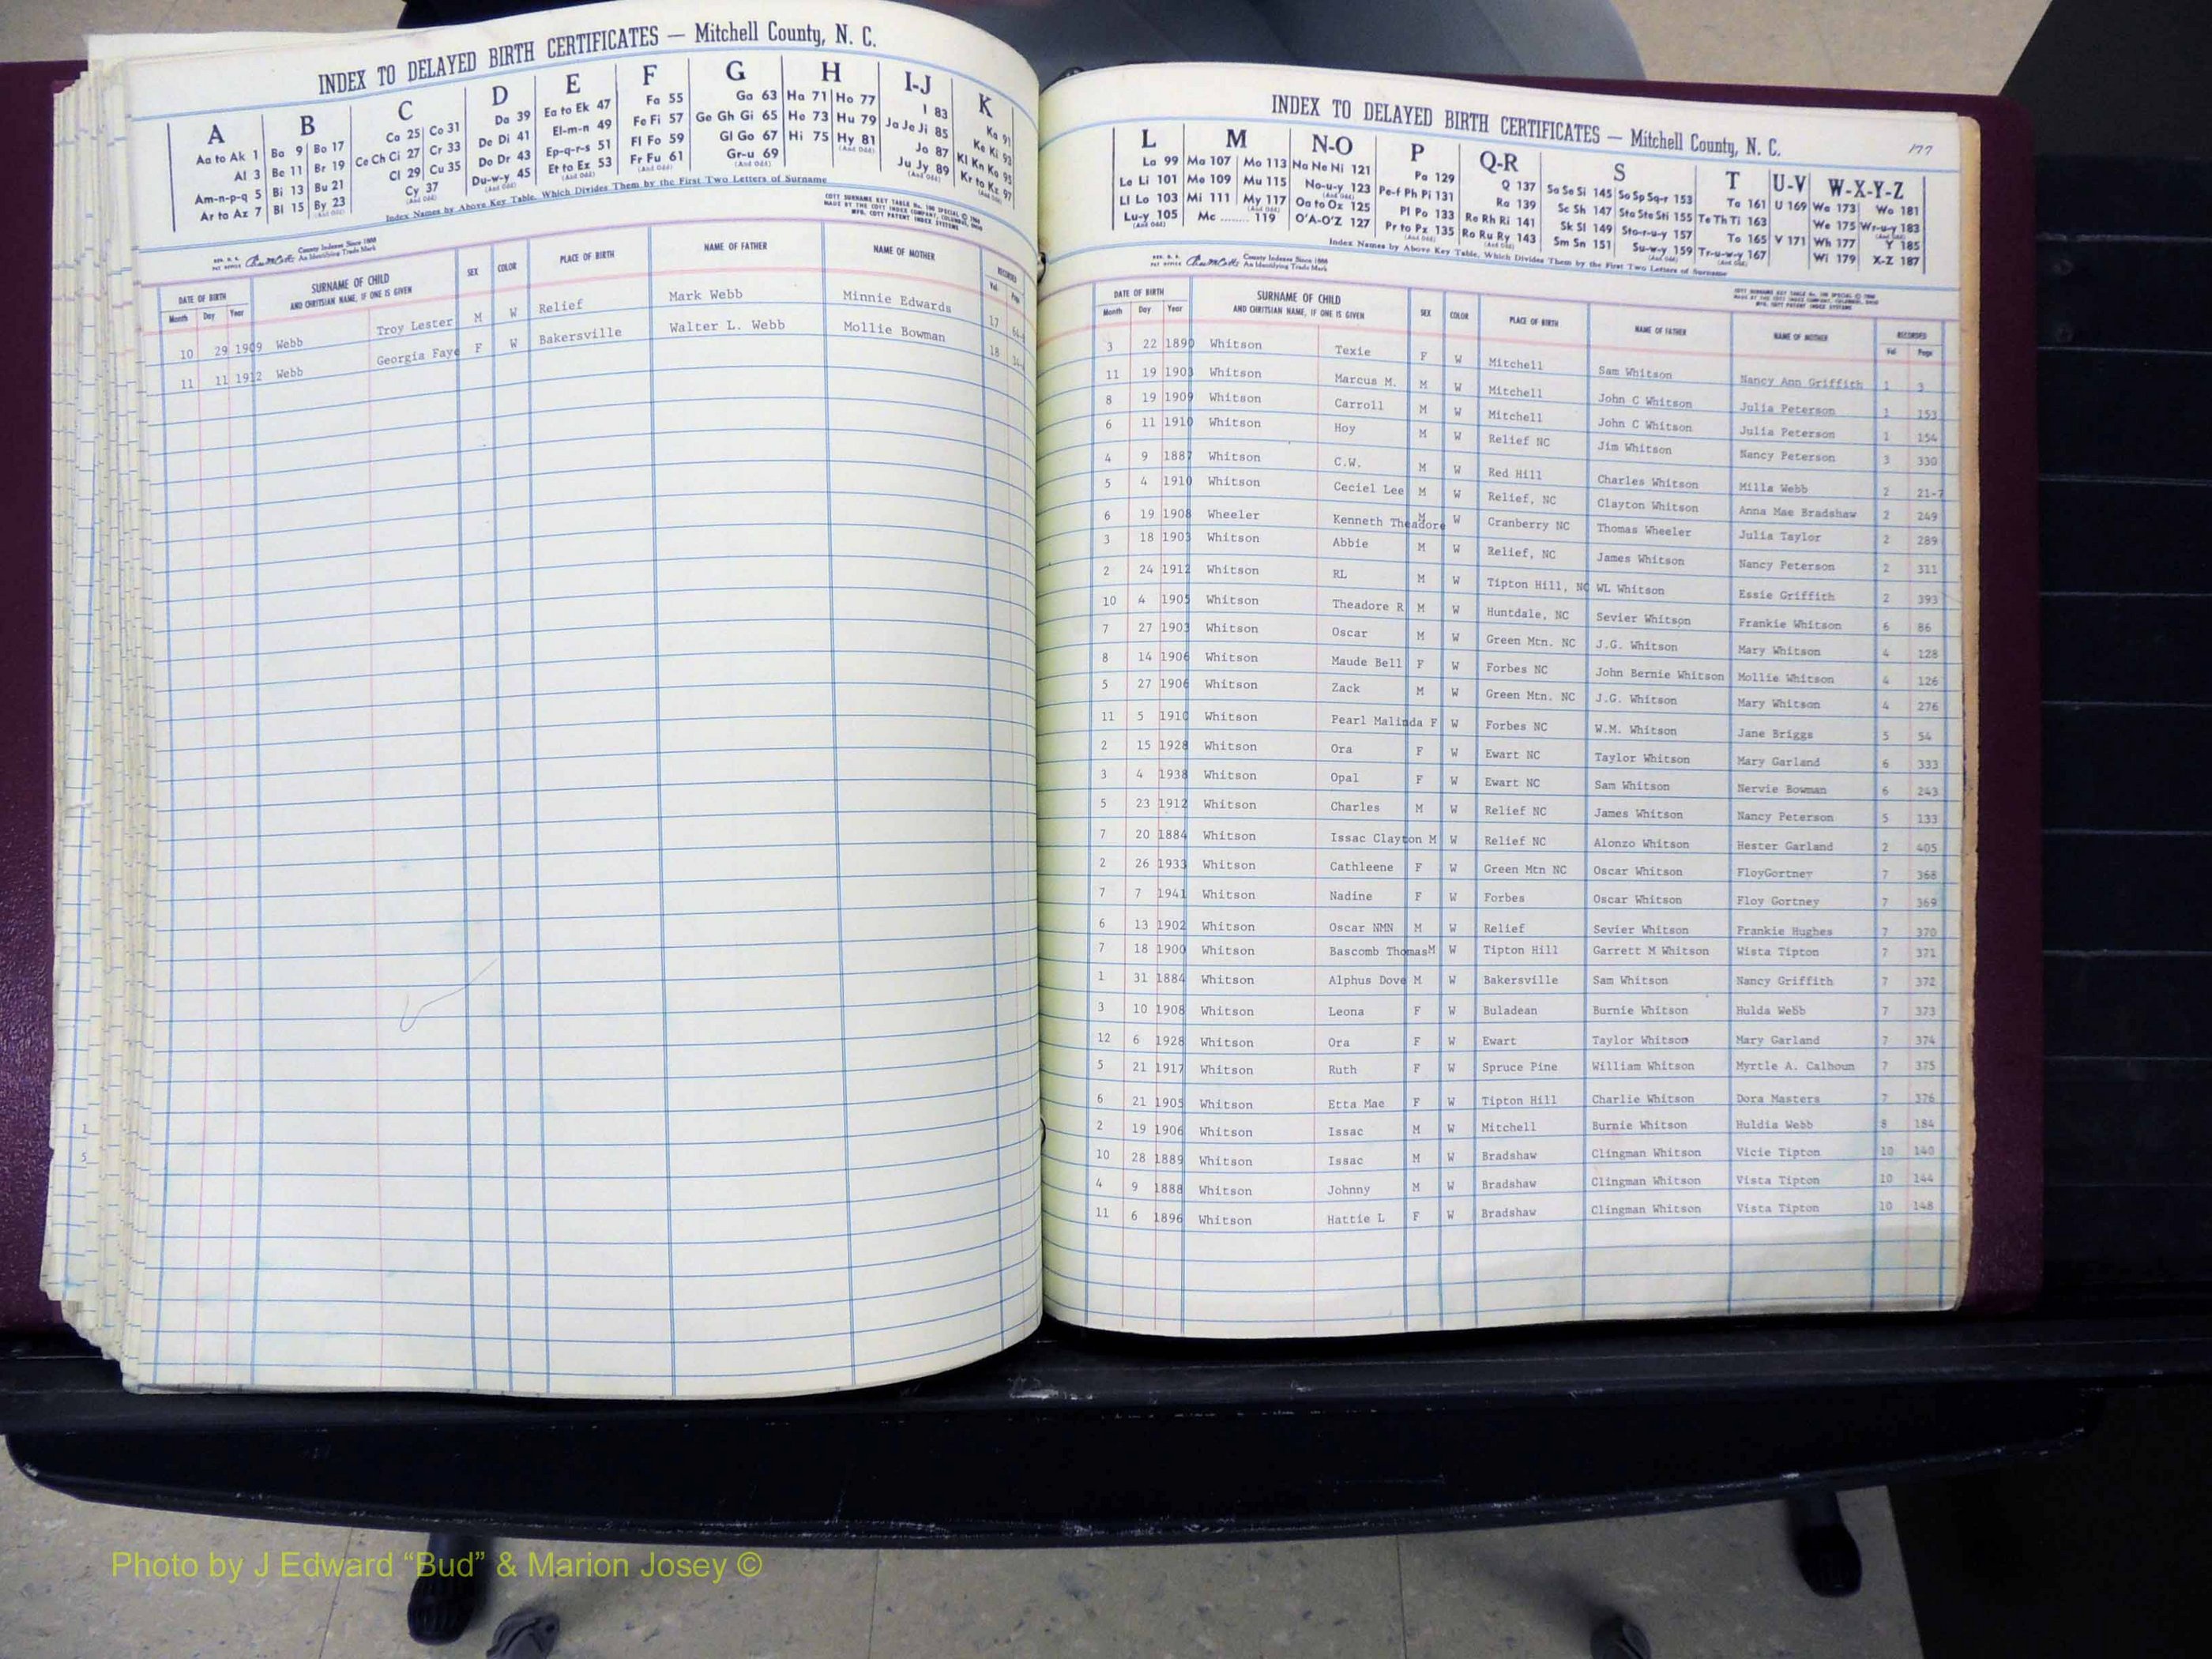 INDEX TO DELAYED BIRTH CERTIFICATES — Mitchell County, N. C.
A B C D E F G H I-J K
Aa to Ak 1 Ba 9 Bo 17 Ca 25 Co 31 Da 39 Ea to Ek 47 Fa 55 Ga 63 Ha 71 Ho 77 I 83 Ka 91
Al 3 Be 11 Br 19 Ce Ch Ci 27 Cr 33 De Di 41 El-m-n 49 Fe Fi 57 Ge Gh Gi 65 He 73 Hu 79 Ja Je Ji 85 Ke Ki 93
Am-n-p-q 5 Bi 13 Bu 21 Cl 29 Cu 35 Do Dr 43 Ep-q-r-s 51 Fl Fo 59 Gl Go 67 Hi 75 Hy 81 Jo 87 Kl Kn Ko 95
Ar to Az 7 Bl 15 By 23 Cy 37 Du-w-y 45 Et to Ez 53 Fr Fu 61 Gr-u 69 Ju Jy 89 Kr to Kz 97
Index Names by Above Key Table, Which Divides Them by the First Two Letters of Surname
COTT SURNAME KEY TABLE No. 100 SPECIAL
MADE BY THE COTT INDEX COMPANY, COLUMBUS, OHIO
MFG. COTT PATENT INDEX SYSTEMS
County Indexes Since 1888
An Identifying Trade Mark
DATE OF BIRTH SURNAME OF CHILD SEX COLOR PLACE OF BIRTH NAME OF FATHER NAME OF MOTHER RECORDED
Month Day Year AND CHRITSIAN NAME, IF ONE IS GIVEN Vol. Page
10 29 1909 Webb Troy Lester M W Relief Mark Webb Minnie Edwards 17
11 11 1912 Webb Georgia Faye F W Bakersville Walter L. Webb Mollie Bowman 18
INDEX TO DELAYED BIRTH CERTIFICATES — Mitchell County, N. C.
177
L M N-O P Q-R S T U-V W-X-Y-Z
La 99 Ma 107 Mo 113 Na Ne Ni 121 Pa 129 Q 137 Sa Se Si 145 So Sp Sq-r 153 Ta 161 U 169 Wa 173 Wo 181
Le Li 101 Me 109 Mu 115 No-u-y 123 Pe-f Ph Pi 131 Ra 139 Sc Sh 147 Sta Ste Sti 155 Te Th Ti 163 We 175 Wr-u-y 183
Ll Lo 103 Mi 111 My 117 Oa to Oz 125 Pl Po 133 Re Rh Ri 141 Sk Sl 149 Sto-r-u-y 157 To 165 V 171 Wh 177 Y 185
Lu-y 105 Mc 119 O'A-O'Z 127 Pr to Pz 135 Ro Ru Ry 143 Sm Sn 151 Su-w-y 159 Tr-u-w-y 167 Wi 179 X-Z 187
Index Names by Above Key Table, Which Divides Them by the First Two Letters of Surname
County Indexes Since 1888
An Identifying Trade Mark
DATE OF BIRTH SURNAME OF CHILD SEX COLOR PLACE OF BIRTH NAME OF FATHER NAME OF MOTHER RECORDED
Month Day Year AND CHRITSIAN NAME, IF ONE IS GIVEN Vol. Page
3 22 1890 Whitson Texie F W Mitchell Sam Whitson Nancy Ann Griffith 1 3
11 19 1903 Whitson Marcus M. M W Mitchell John C Whitson Julia Peterson 1 153
8 19 1909 Whitson Carroll M W Mitchell John C Whitson Julia Peterson 1 154
6 11 1910 Whitson Hoy M W Relief NC Jim Whitson Nancy Peterson 3 330
4 9 1887 Whitson C.W. M W Red Hill Charles Whitson Milla Webb 2 21-7
5 4 1910 Whitson Ceciel Lee M W Relief, NC Clayton Whitson Anna Mae Bradshaw 2 249
6 19 1908 Wheeler Kenneth Theadore M W Cranberry NC Thomas Wheeler Julia Taylor 2 289
3 18 1903 Whitson Abbie M W Relief, NC James Whitson Nancy Peterson 2 311
2 24 1912 Whitson RL M W Tipton Hill, NC WL Whitson Essie Griffith 2 393
10 4 1905 Whitson Theadore R M W Huntdale, NC Sevier Whitson Frankie Whitson 6 86
7 27 1903 Whitson Oscar M W Green Mtn. NC J.G. Whitson Mary Whitson 4 128
8 14 1906 Whitson Maude Bell F W Forbes NC John Bernie Whitson Mollie Whitson 4 126
5 27 1906 Whitson Zack M W Green Mtn. NC J.G. Whitson Mary Whitson 4 276
11 5 1910 Whitson Pearl Malinda F W Forbes NC W.M. Whitson Jane Briggs 5 54
2 15 1928 Whitson Ora F W Ewart NC Taylor Whitson Mary Garland 6 333
3 4 1938 Whitson Opal F W Ewart NC Sam Whitson Nervie Bowman 6 243
5 23 1912 Whitson Charles M W Relief NC James Whitson Nancy Peterson 5 133
7 20 1884 Whitson Issac Clayton M W Relief NC Alonzo Whitson Hester Garland 2 405
2 26 1933 Whitson Cathleene F W Green Mtn NC Oscar Whitson FloyGortney 7 368
7 7 1941 Whitson Nadine F W Forbes Oscar Whitson Floy Gortney 7 369
6 13 1902 Whitson Oscar NMN M W Relief Sevier Whitson Frankie Hughes 7 370
7 18 1900 Whitson Bascomb Thomas M W Tipton Hill Garrett M Whitson Wista Tipton 7 371
1 31 1884 Whitson Alphus Dove M W Bakersville Sam Whitson Nancy Griffith 7 372
3 10 1908 Whitson Leona F W Buladean Burnie Whitson Hulda Webb 7 373
12 6 1928 Whitson Ora F W Ewart Taylor Whitson Mary Garland 7 374
5 21 1917 Whitson Ruth F W Spruce Pine William Whitson Myrtle A. Calhoun 7 375
6 21 1905 Whitson Etta Mae F W Tipton Hill Charlie Whitson Dora Masters 7 376
2 19 1906 Whitson Issac M W Mitchell Burnie Whitson Huldia Webb 8 184
10 28 1889 Whitson Issac M W Bradshaw Clingman Whitson Vicie Tipton 10 140
4 9 1888 Whitson Johnny M W Bradshaw Clingman Whitson Vista Tipton 10 144
11 6 1896 Whitson Hattie L F W Bradshaw Clingman Whitson Vista Tipton 10 148
Photo by J Edward “Bud” & Marion Josey ©